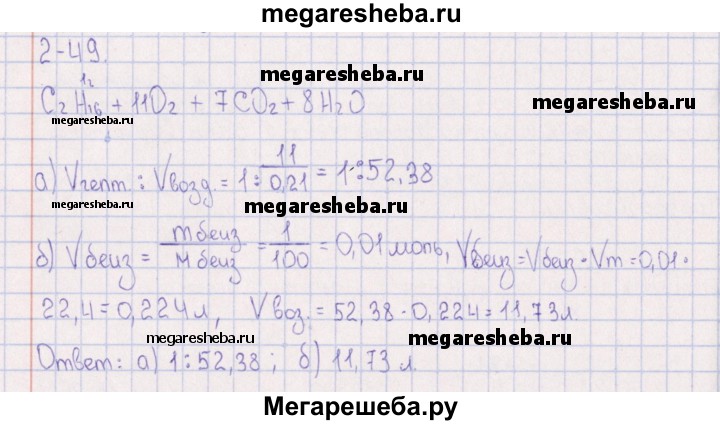 megaresheba.ru
2-49.
megaresheba.ru
1г
C₂H₁₆ + 11O₂ + 7CO₂ + 8H₂O
megaresheba.ru
megaresheba.ru
а) Vгепт. : Vвозд. = 1 : 11/0,21 = 1:52,38
megaresheba.ru
megaresheba.ru
б) Vбенз = mбенз/Mбенз = 1/100 = 0,01 моль, Vбенз = Vбенз · Vm = 0,01 ·
megaresheba.ru
22,4 = 0,224 л, Vвоз. = 52,38 · 0,224 = 11,73 л.
megaresheba.ru
Ответ: а) 1:52,38; б) 11,73 л.
megaresheba.ru
Мегарешеба.ру